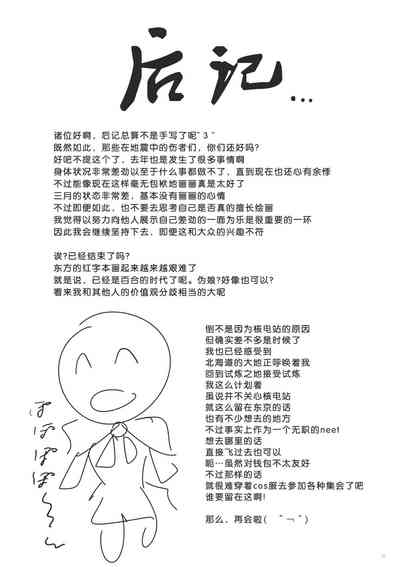 后记...
诸位好啊，后记总算不是手写了呢˘3˘
既然如此，那些在地震中的伤者们，你们还好吗?
好吧不提这个了，去年也是发生了很多事情啊
身体状况非常差劲以至于什么事都做不了，直到现在也还心有余悸
不过能像现在这样毫无包袱地画画真是太好了
三月的状态非常差，基本没有画画的心情
不过即便如此，也不要去思考自己是否真的擅长绘画
我觉得以努力向他人展示自己差劲的一面为乐是很重要的一环
因此我会继续坚持下去，即便这和大众的兴趣不符
诶?已经结束了吗?
东方的红字本画起来越来越艰难了
就是说，已经是百合的时代了呢。伪娘?好像也可以?
看来我和其他人的价值观分歧相当的大呢
倒不是因为核电站的原因
但确实差不多是时候了
我也已经感受到
北海道的大地正呼唤着我
回到试炼之地接受试炼
我这么计划着
虽说并不关心核电站
就这么留在东京的话
也有不少想去的地方
不过事实上作为一个无职的neet
想去哪里的话
直接飞过去也可以
呃…虽然对钱包不太友好
不过那样的话
就很难穿着cos服去参加各种集会了吧
谁要留在这啊!
那么，再会啦( ˆ¬ˆ )
ぽぽぽぽ